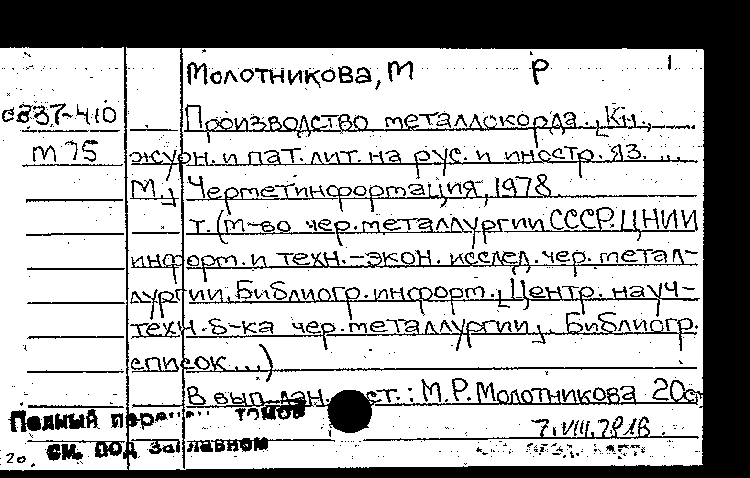 Молотникова, М Р 1
с837-410 Производство металлокорда. [Кн.,
М 75 журн. и пат. лит. на рус. и иностр. яз. ...
М.], Черметинформация, 1978.
т. (М-во чер. металлургии СССР. ЦНИИ
информ. и техн.-экон. исслед. чер. метал-
лургии. Библиогр. информ. [Центр. науч-
техн. б-ка чер. металлургии]. Библиогр.
список...)
В вып. дан. : М.Р. Молотникова 20см
Полный томов
7.VIII.78 1В
см. под заглавием
20.